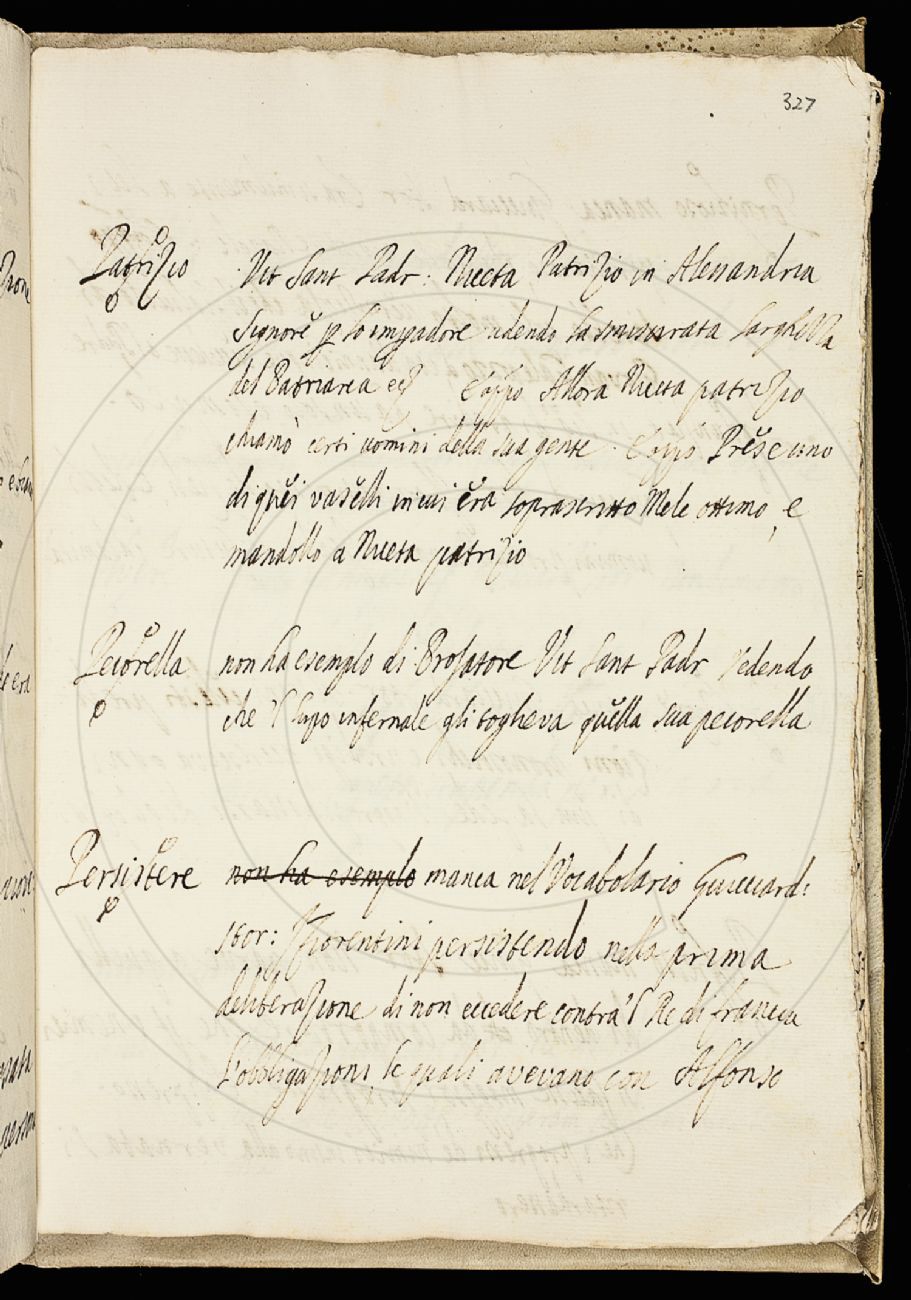 327
Patrizio Vit Sant Padr: Niceta Patrizio in Alessandria
Signore p lo impadore udendo la smisurata larghezza
del Patriarca ec E appo Allora Niceta patrizio
chiamò certi uomini della sua gente. E appo Prese uno
di quei vaselli in cui era soprascritto Mele ottimo, e
mandollo a Niceta patrizio
Pecorella non ha esemplo di Prosatore Vit Sant Padr Vedendo
che 'l lupo infernale gli toglieva quella sua pecorella
Persistere non ha esemplo manca nel Vocabolario Guicciard:
stor: Fiorentini persistendo nella prima
deliberazione di non eccedere contra 'l Re di francia
l'obbligazioni, le quali avevano con Alfonso